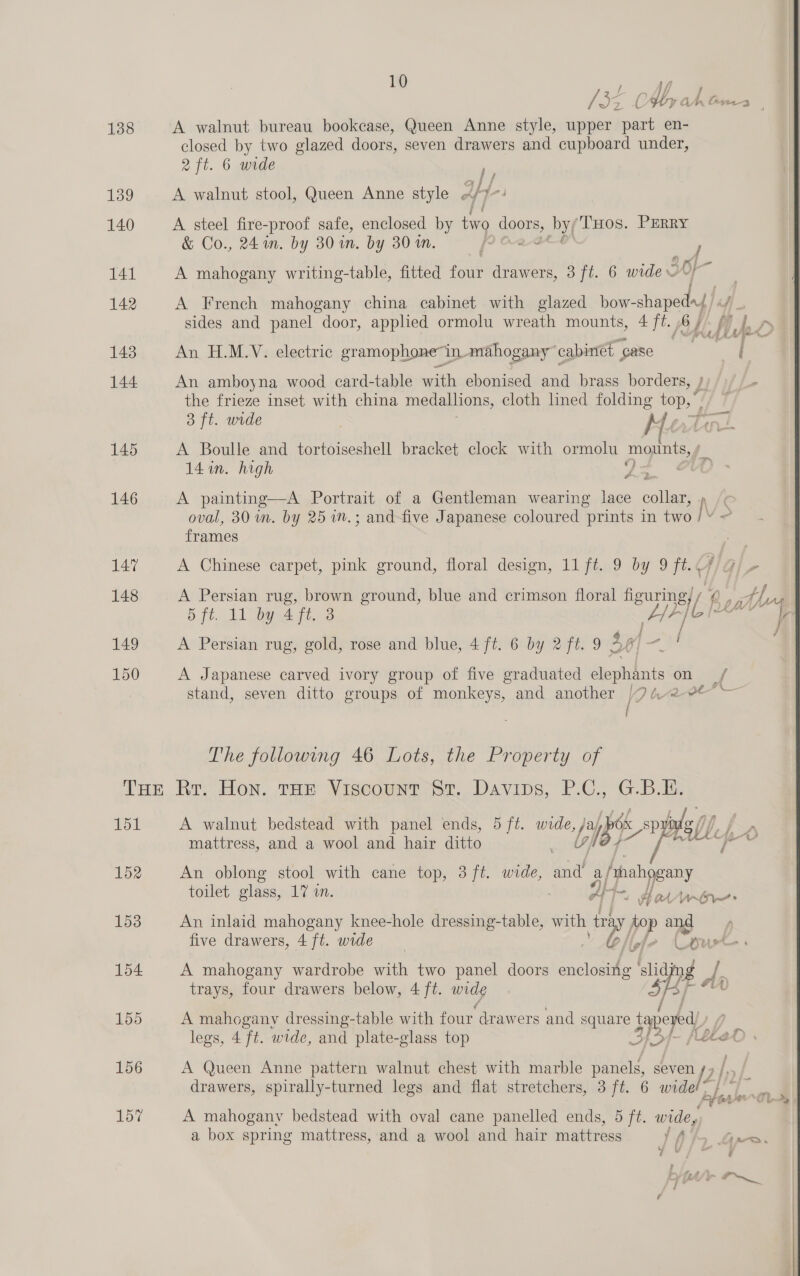 10
138 A walnut bureau bookcase, Queen Anne style, upper part en-
closed by two glazed doors, seven drawers and cupboard under,
2 ft. 6 wide
139 A walnut stool, Queen Anne style
140 A steel fire-proof safe, enclosed by two doors, by THOS. PERRY
& Co., 24 in. by 30 in. by 30 in.
141 A mahogany writing-table, fitted four drawers, 3 ft. 6 wide
142 A French mahogany china cabinet with glazed bow-shaped
sides and panel door, applied ormolu wreath mounts, 4 ft. 6
143 An H.M.V. electric gramophone in mahogany cabinet case
144 An amboyna wood card-table with ebonised and brass borders,
the frieze inset with china medallions, cloth lined folding top,
3 ft. wide
145 A Boulle and tortoiseshell bracket clock with ormolu mounts,
14 in. high
146 A painting—A Portrait of a Gentleman wearing lace collar,
oval, 30 in. by 25 in.; and five Japanese coloured prints in two
frames
147 A Chinese carpet, pink ground, floral design, 11 ft. 9 by 9 ft.
148 A Persian rug, brown ground, blue and crimson floral figuring,
5 ft. 11 by 4 ft. 3
149 A Persian rug, gold, rose and blue, 4 ft. 6 by 2 ft. 9
150 A Japanese carved ivory group of five graduated elephants on
stand, seven ditto groups of monkeys, and another
The following 46 Lots, the Property of
THE RT. HON. THE VISCOUNT ST. DAVIDS, P.C., G.B.E.
151 A walnut bedstead with panel ends, 5 ft. wide, a box spring
mattress, and a wool and hair ditto
152 An oblong stool with cane top, 3 ft. wide, and a mahogany
toilet glass, 17 in.
153 An inlaid mahogany knee-hole dressing-table, with tray top and
five drawers, 4 ft. wide
154 A mahogany wardrobe with two panel doors enclosing sliding
trays, four drawers below, 4 ft. wide
155 A mahogany dressing-table with four drawers and square tapered
legs, 4 ft. wide, and plate-glass top
156 A Queen Anne pattern walnut chest with marble panels, seven
drawers, spirally-turned legs and flat stretchers, 3 ft. 6 wide
157 A mahogany bedstead with oval cane panelled ends, 5 ft. wide,
a box spring mattress, and a wool and hair mattress